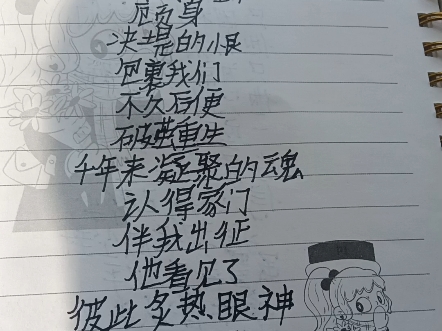 决堤的恨
包裹我们
不久后便
破茧重生
千年来凝聚的魂
认得家门
伴我出征
他看见了
彼此炙热眼神